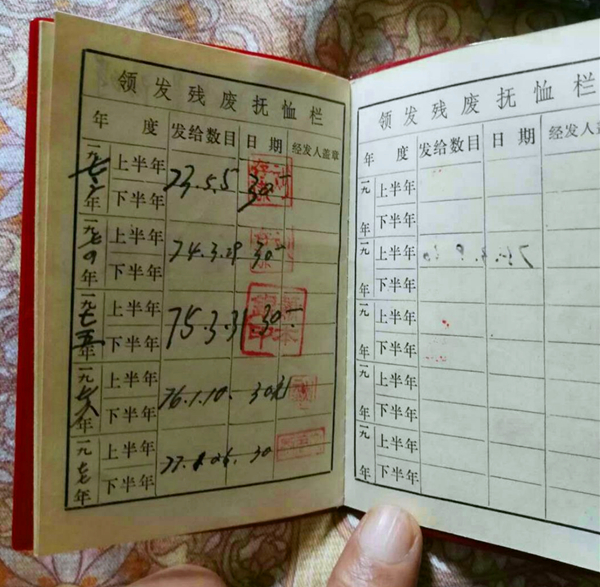 领发残废抚恤栏
年 度 发给数目 日期 经发人盖章
一九七三年 上半年 下半年 73.5.5 30-
一九七四年 上半年 下半年 74.3.29 30-
一九七五年 上半年 下半年 75.3.31 30-
一九七六年 上半年 下半年 76.1.10. 30
一九七七年 上半年 下半年 30
领发残废抚恤栏
年 度 发给数目 日期 经发人盖章
一九 年 上半年 下半年
一九 年 上半年 下半年
一九 年 上半年 下半年
一九 年 上半年 下半年
一九 年 上半年 下半年